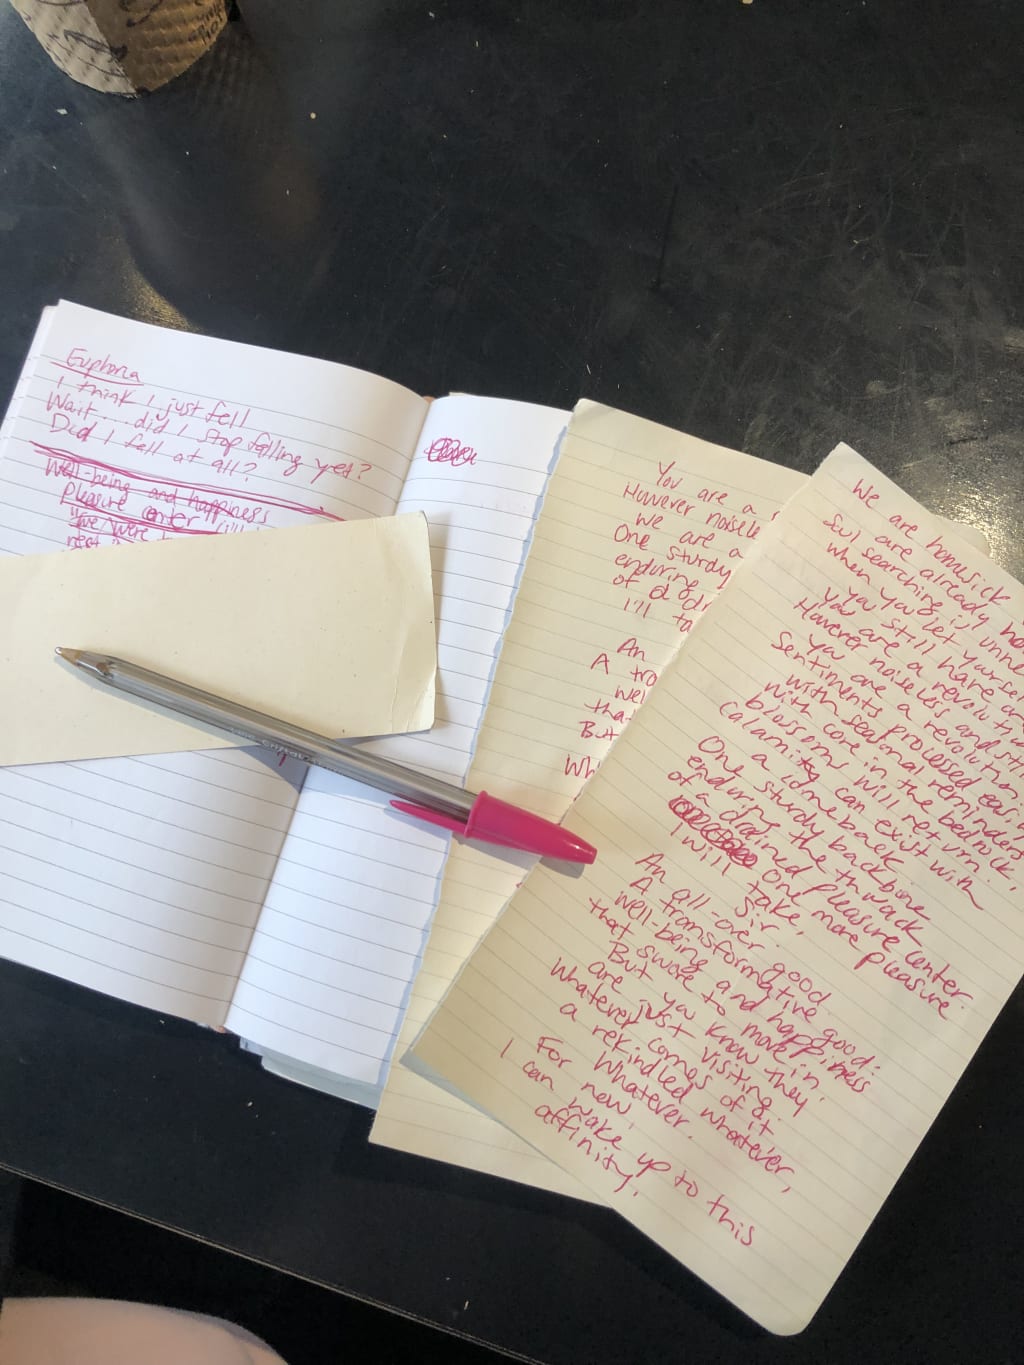 Euphoria
I think I just fell
Wait... did I stop falling yet?
Did I fell at all?
Well-being and happiness
Pleasure center
I've/were
nest
You are a
However noisele
We are a
One sturdy
enduring
of a dr
I'll ta
An
A tro
Wel
tha
But
Wh
We are homesick
are already ho
Soul searching is unne
when you let yoursel
you still have an
You are a revolution
However noiseless and still
you are a revolution
Sentiments processed
with seasonal reminders
with core in the bedrock,
blossoms will return.
Calamity can exist with
a comeback
One sturdy backbone
enduring the thwack
of a drained pleasure center.
one more pleasure
I will take,
Sir.
An all-over good.
A transformative good:
well-being and happiness
that swore to move in.
But you know they
are just visiting.
Whatever comes of it
a rekindled whatever,
For whatever.
I can now,
wake up to this
affinity.